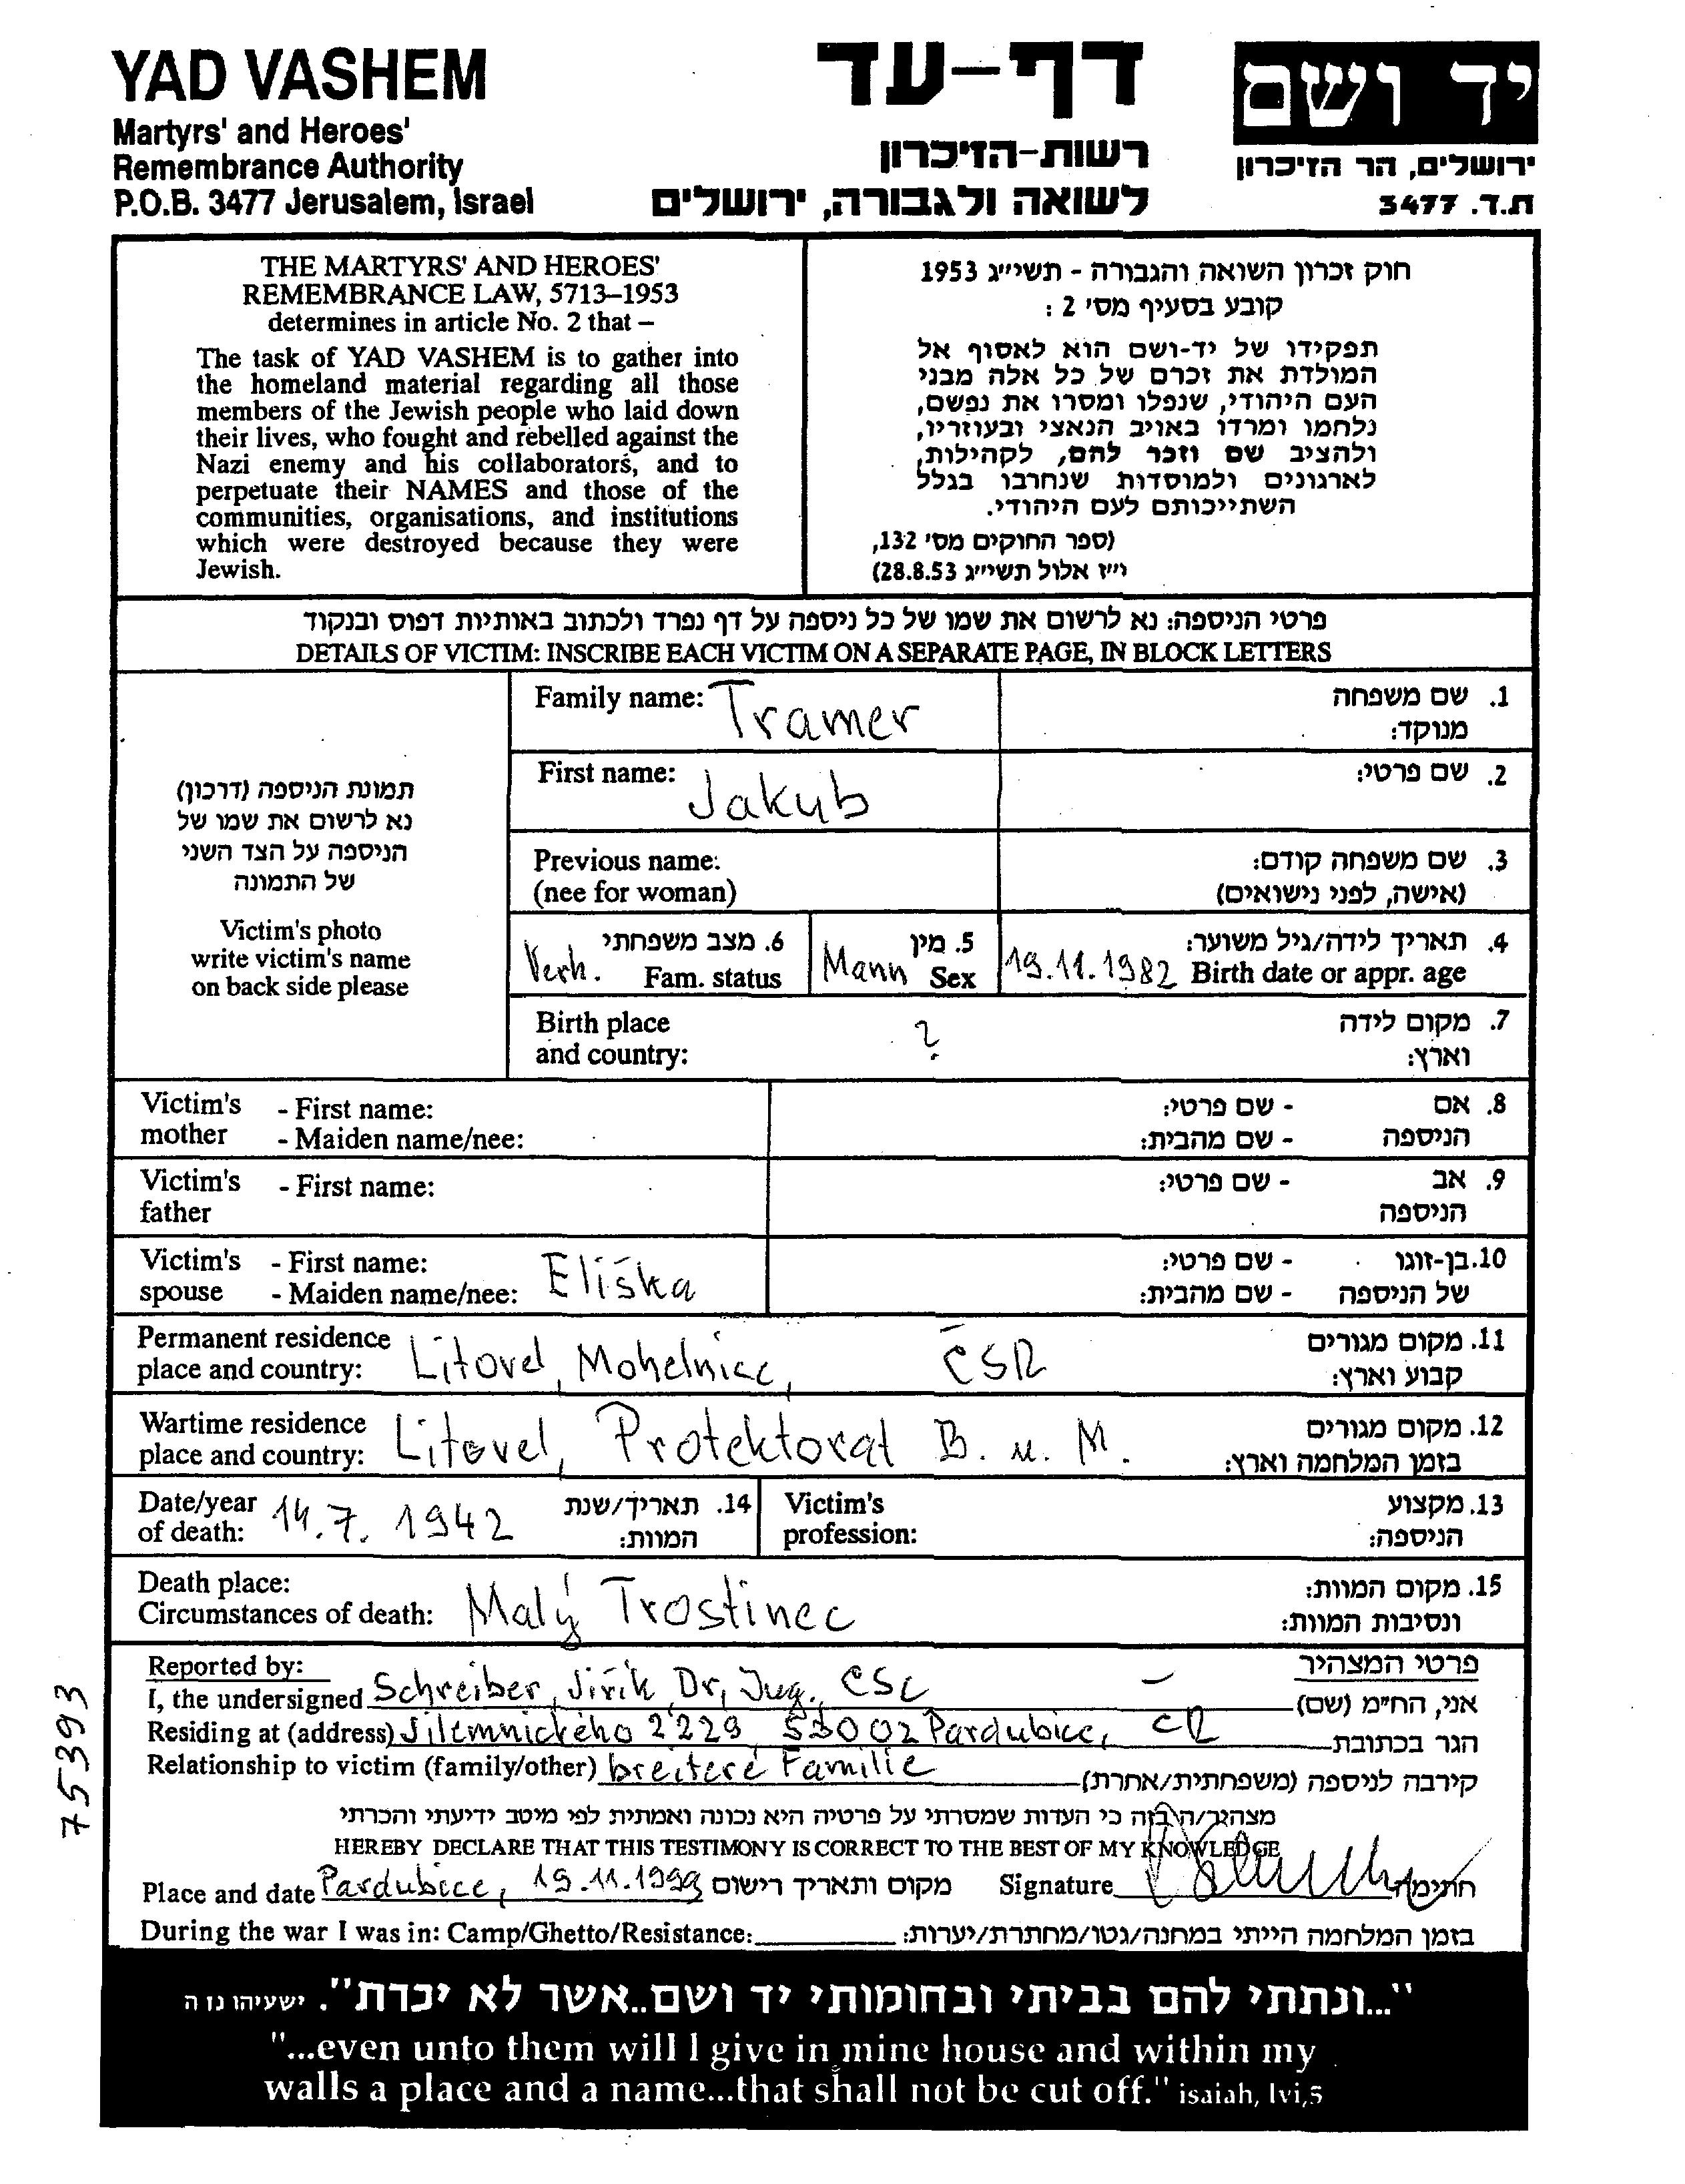 YAD VASHEM
Martyrs' and Heroes'
Remembrance Authority
P.O.B. 3477 Jerusalem, Israel
דף-עד
רשות-הזיכרון
לשואה ולגבורה, ירושלים
יד ושם
ירושלים, הר הזיכרון
ת.ד. 3477
THE MARTYRS' AND HEROES'
REMEMBRANCE LAW, 5713–1953
determines in article No. 2 that –
The task of YAD VASHEM is to gather into
the homeland material regarding all those
members of the Jewish people who laid down
their lives, who fought and rebelled against the
Nazi enemy and his collaborators, and to
perpetuate their NAMES and those of the
communities, organisations, and institutions
which were destroyed because they were
Jewish.
חוק זכרון השואה והגבורה - תשי״ג 1953
קובע בסעיף מס׳ 2 :
תפקידו של יד-ושם הוא לאסוף אל
המולדת את זכרם של כל אלה מבני
העם היהודי, שנפלו ומסרו את נפשם,
נלחמו ומרדו באויב הנאצי ובעוזריו,
ולהציב שם וזכר להם, לקהילות,
לארגונים ולמוסדות שנחרבו בגלל
השתייכותם לעם היהודי.
(ספר החוקים מס׳ 132,
י״ז אלול תשי״ג 28.8.53)
פרטי הניספה: נא לרשום את שמו של כל ניספה על דף נפרד ולכתוב באותיות דפוס ובנקוד
DETAILS OF VICTIM: INSCRIBE EACH VICTIM ON A SEPARATE PAGE, IN BLOCK LETTERS
תמונת הניספה (דרכון)
נא לרשום את שמו של
הניספה על הצד השני
של התמונה
Victim's photo
write victim's name
on back side please
Family name: Tramer 1. שם משפחה
מנוקד:
First name: Jakub 2. שם פרטי:
Previous name: 3. שם משפחה קודם:
(nee for woman) (אישה, לפני נישואים)
Verh. 6. מצב משפחתי Fam. status
Mann 5. מין Sex
19.11.1982 4. תאריך לידה/גיל משוער: Birth date or appr. age
Birth place 7. מקום לידה
and country: ? וארץ:
Victim's - First name: - שם פרטי: 8. אם
mother - Maiden name/nee: - שם מהבית: הניספה
Victim's - First name: - שם פרטי: 9. אב
father הניספה
Victim's - First name: - שם פרטי: 10. בן-זוגו
spouse - Maiden name/nee: Eliška - שם מהבית: של הניספה
Permanent residence 11. מקום מגורים
place and country: Litovel, Mohelnice, ČSR קבוע וארץ:
Wartime residence 12. מקום מגורים
place and country: Litovel, Protektorat B. u. M. בזמן המלחמה וארץ:
Date/year 14. תאריך/שנת
of death: 14.7.1942 המוות:
Victim's 13. מקצוע
profession: הניספה:
Death place: 15. מקום המוות:
Circumstances of death: Malý Trostinec ונסיבות המוות:
Reported by: פרטי המצהיר
I, the undersigned Schreiber, Jiřik, Dr, Jug., CSc אני, הח״מ (שם)
Residing at (address) Jilemnického 2229, 53002 Pardubice, ČR הגר בכתובת
Relationship to victim (family/other) breitere Familie קירבה לניספה (משפחתית/אחרת)
מצהיר/ה בזה כי העדות שמסרתי על פרטיה היא נכונה ואמתית לפי מיטב ידיעתי והכרתי
HEREBY DECLARE THAT THIS TESTIMONY IS CORRECT TO THE BEST OF MY KNOWLEDGE
Place and date Pardubice, 19.11.1999 מקום ותאריך רישום Signature חתימה
During the war I was in: Camp/Ghetto/Resistance: בזמן המלחמה הייתי במחנה/גטו/מחתרת/יערות:
75393
"...ונתתי להם בביתי ובחומותי יד ושם..אשר לא יכרת". ישעיהו נו ה
"...even unto them will I give in mine house and within my
walls a place and a name...that shall not be cut off." isaiah, lvi,5